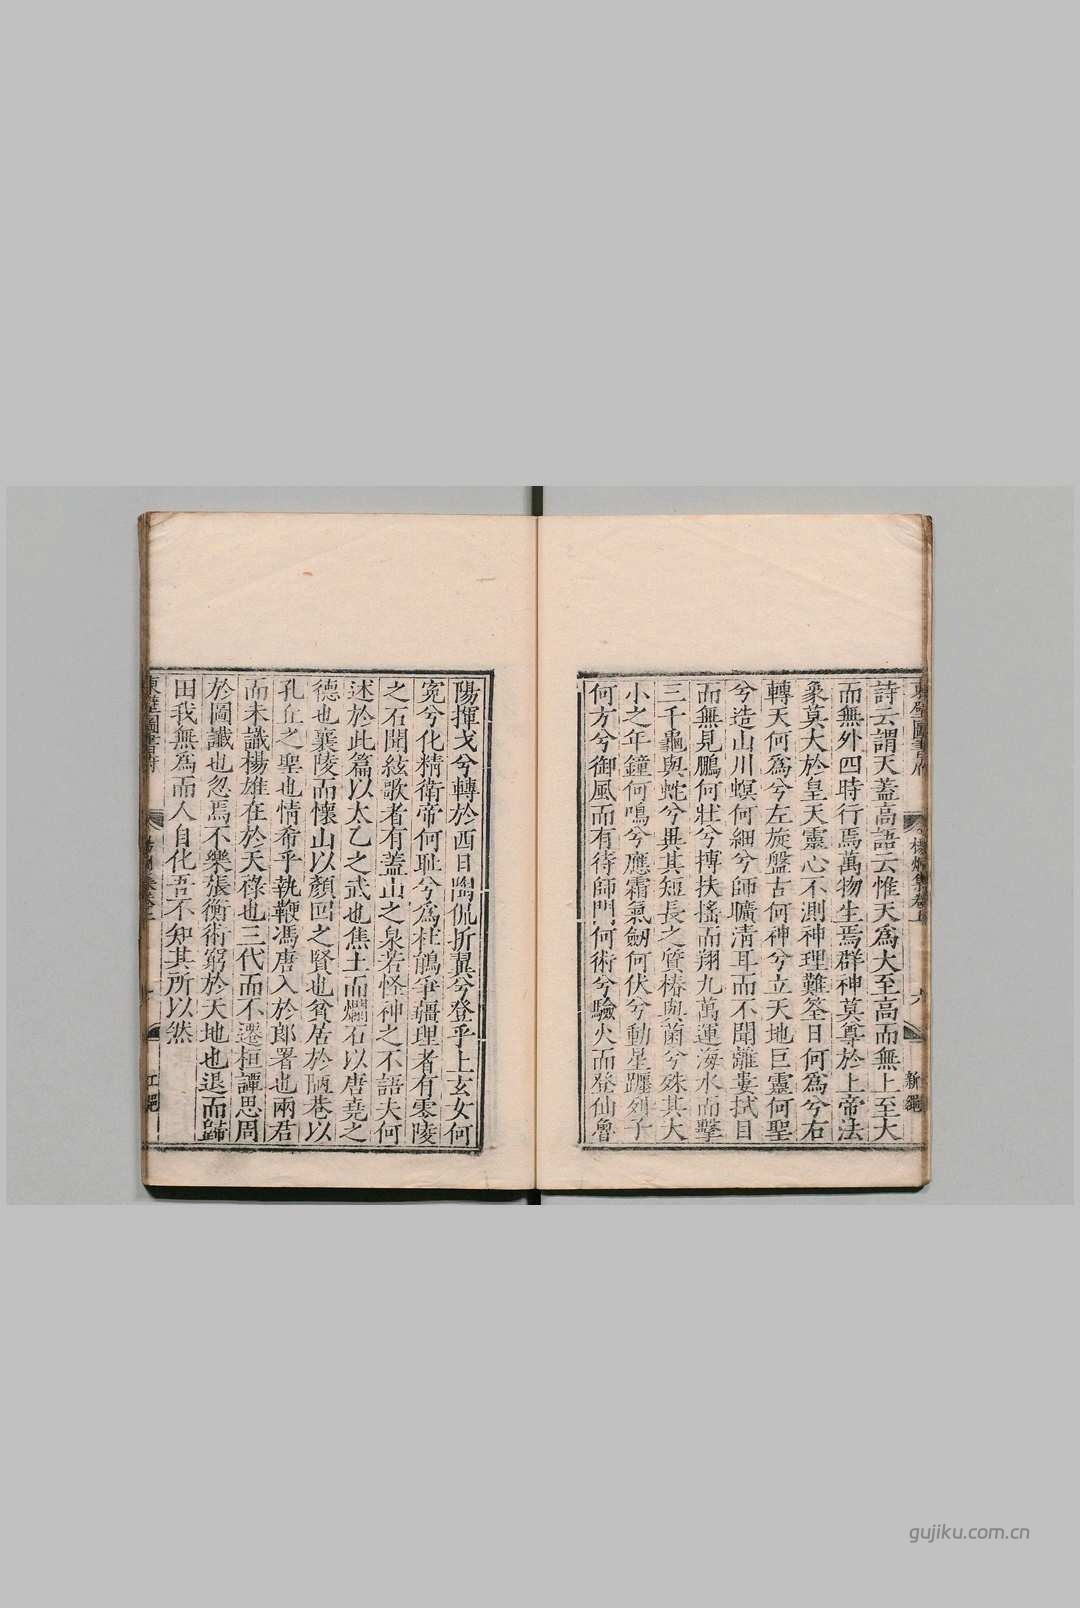 詩云謂天蓋高語云惟天爲大至高而無上至大
而無外四時行焉萬物生焉群神莫尊於上帝法
象莫大於皇天靈心不測神理難筌日何爲兮右
轉天何爲兮左旋盤古何神兮立天地巨靈何聖
兮造山川螟何細兮師曠清耳而不聞離婁拭目
而無見鵬何壯兮搏扶搖而翔九萬運海水而擊
三千龜與蛇兮異其短長之質椿與菌兮殊其大
小之年鐘何鳴兮應霜氣劒何伏兮動星躔列子
何方兮御風而有待師門何術兮驗火而登仙魯
陽揮戈兮轉於西日陶侃折翼兮登乎上玄女何
寃兮化精衛帝何耻兮爲杜鵑爭疆理者有零陵
之石聞絃歌者有蓋山之泉若怪神之不語夫何
述於此篇以太乙之武也焦土而爛石以唐堯之
德也襄陵而懷山以顏回之賢也貧居於陋巷以
孔丘之聖也情希乎執鞭馮唐入於郎署也兩君
而未識楊雄在於天祿也三代而不遷桓譚思周
於圖讖也忽焉不樂張衡術窮於天地也退而歸
田我無爲而人自化吾不知其所以然
東壁圖書府
江
gujiku.com.cn